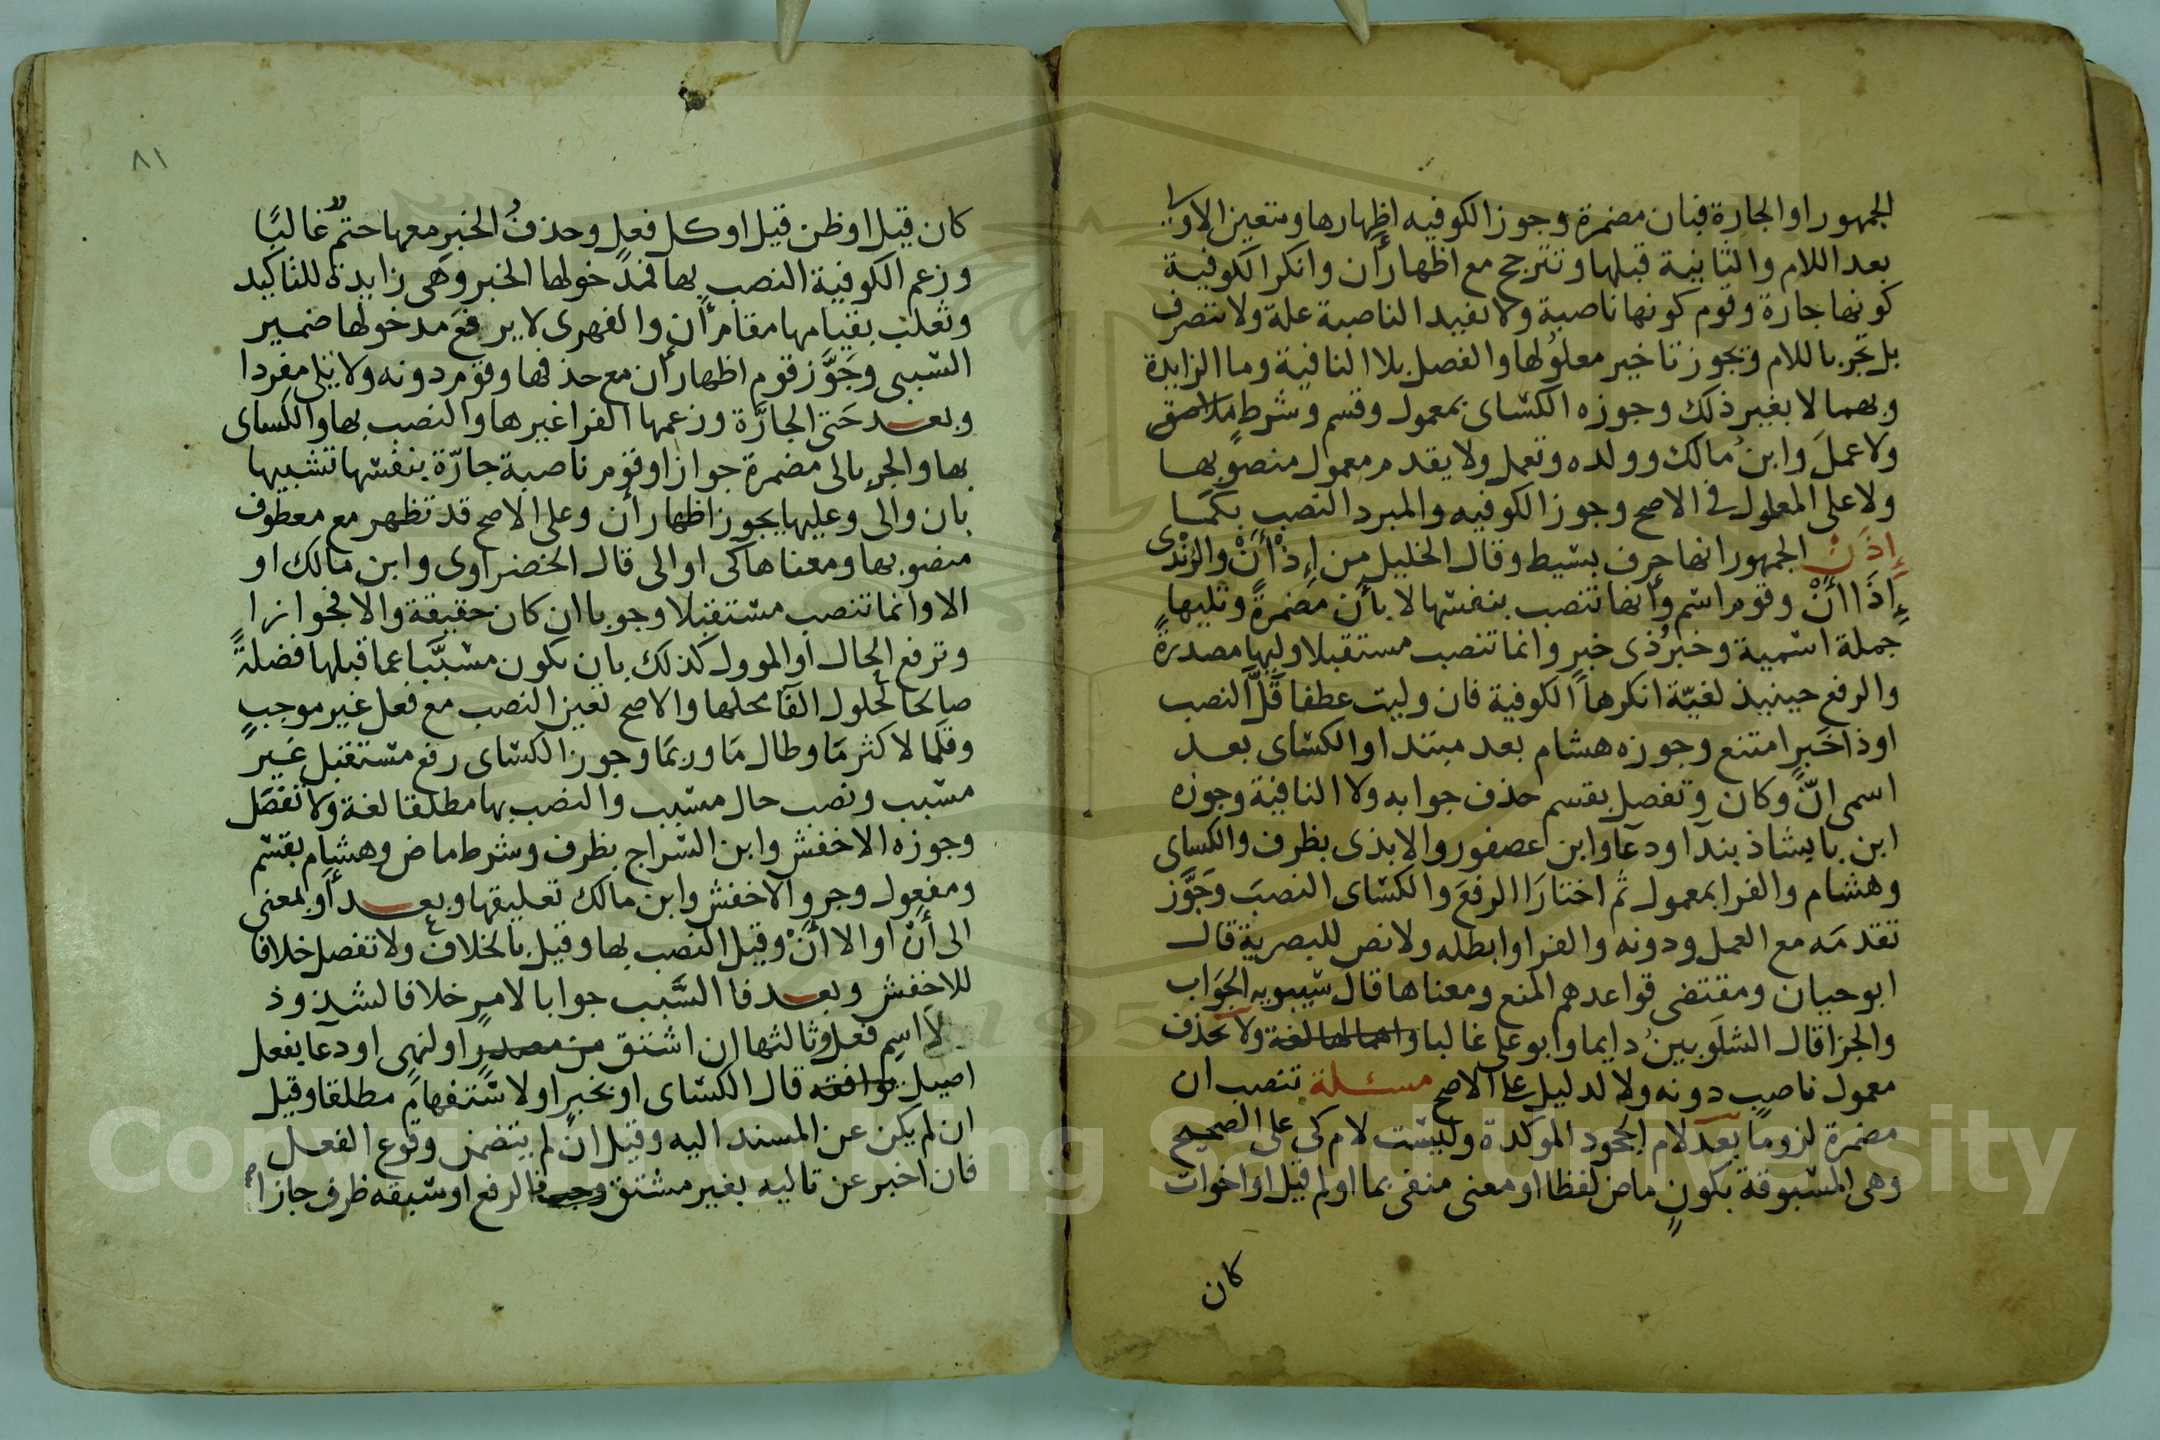 الجمهور او الجارة فبان مضمرة وجوز الكوفيه اظهارها ويتعين الاولى
بعد اللام والثانية قبلها وتترجح مع اظهار أن وانكر الكوفية
كونها جارة وقوم كونها ناصبة ولا تفيد الناصبة علة ولا تتصرف
بل تجر باللام ويجوز تاخير معلولها والفصل بلا النافية وما الزايدة
وبهما لا بغير ذلك وجوزه الكسائ بمعمول وقسم وشرط ملاصق
ولا عمل وابن مالك وولده وتعمل ولا يقدم معمول منصوبها
ولا على المعلول في الاصح وجوز الكوفيه والمبرد النصب بكما
إذن الجمهور انها حرف بسيط وقال الخليل من إذ أن والرندى
إذا أن وقوم اسم وأنها تنصب بنفسها لا بأن مضمرة وتليها
جملة اسمية وخبر ذى خبر وانما تنصب مستقبلا وليها مصدرة
والرفع حينيذ لغية انكرها الكوفية فان وليت عطفا قل النصب
او ذا خبر امتنع وجوزه هشام بعد مبتدا والكسائ بعد
اسمى ان وكان وتفصل بقسم حذف جوابه ولا النافية وجوزه
ابن بابشاذ بندا ودعا وابن عصفور والابذى بظرف والكساى
وهشام والفرا بمعمول ثم اختارا الرفع والكسائ النصب وجوز
تقدمه مع العمل ودونه والفرا وابطله ولا نص للبصرية قال
ابو حيان ومقتضى قواعدهم المنع ومعناها قال سيبويه الجواب
والجزا قال الشلوبين دايما وابو على غالبا واهمالها لغة ولا تحذف
معمول ناصب دونه ولا لدليل على الاصح مسئلة تنصب ان
مضمرة لزوما بعد لام الجحود الموكدة وليست لام كي على الصحيح
وهى المسبوقة بكون ماض لفظا او معنى منفى بما او لم قيل او اخوات
كان
٨١
كان قيل او ظن قيل او كل فعل وحذف الخبر معها حتم غالبا
وزعم الكوفية النصب بها فمدخولها الخبر وهى زايدة للتاكيد
وثعلب بقيامها مقام أن والفهرى لا يرفع مدخولها ضمير
السببى وجوز قوم اظهار أن مع حذفها وقوم دونه ولا يلى مفردا
وبعد حتى الجارة وزعمها الفرا غيرها والنصب بها والكساى
بها والجر بالى مضمرة جوازا وقوم ناصبة جارة بنفسها تشبيها
بان والى وعليها يجوز اظهار أن وعلى الاصح قد تظهر مع معطوف
منصوبها ومعناها كى او الى قال الخضراوى وابن مالك او
الا وانما تنصب مستقبلا وجوبا ان كان حقيقة والا فجوازا
وترفع الحال او الموول كذلك بان يكون مسببا عما قبلها فضلة
صالحا لحلول الفا محلها والاصح تعين النصب مع فعل غير موجب
وقلما لا كثر ما وطال ما وربما وجوز الكسائ رفع مستقبل غير
مسبب ونصب حال مسبب والنصب بها مطلقا لغة ولا تفصل
وجوزه الاخفش وابن السراج بظرف وشرط ماض وهشام بقسم
ومفعول وجر والاخفش وابن مالك تعليقها وبعد أو بمعنى
الى أن او الا أن وقيل النصب بها وقيل بالخلاف ولا تفصل خلافا
للاخفش وبعد فا السبب جوابا لامر خلافا لشذوذ
لا اسم فعل وثالثها ان اشتق من مصدر او لنهى او دعا بفعل
اصيل يوافقه قال الكسائ او بخبر او لاستفهام مطلقا وقيل
ان لم يكن عن المسند اليه وقيل ان لم يتضمن وقوع الفعل
فان اخبر عن تاليه بغير مشتق وجب الرفع او سبقه ظرف جازا